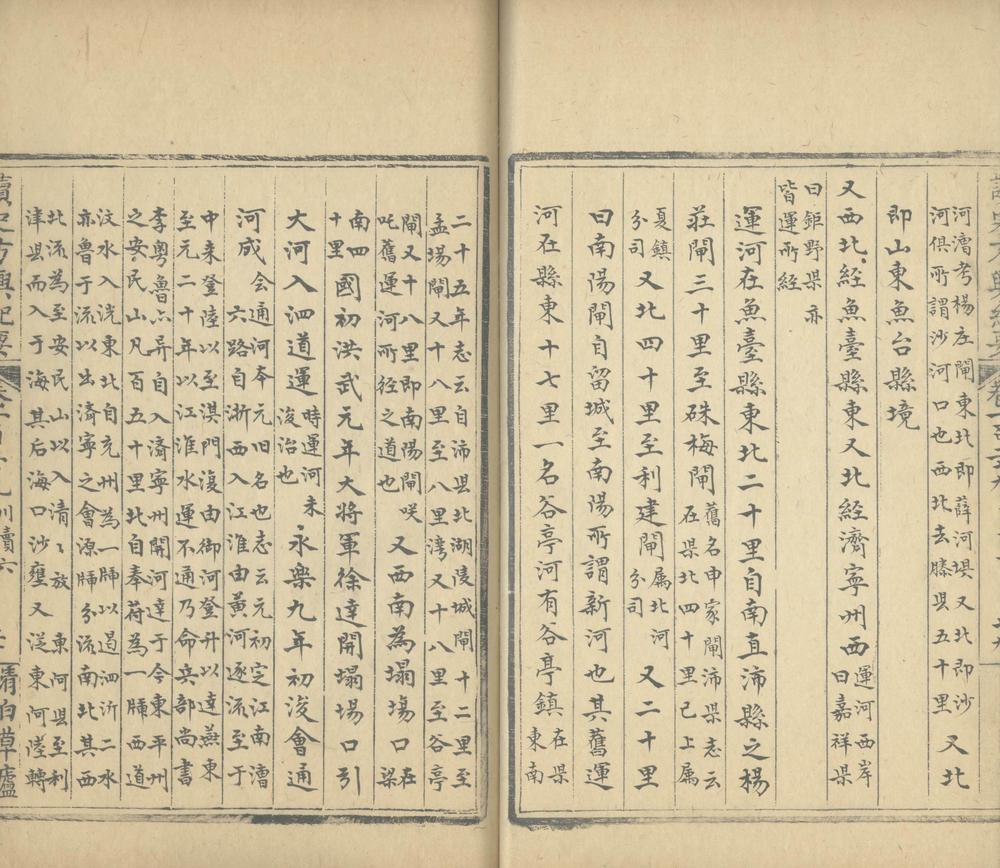 河漕考楊庄閘東北即薛河垻又北即沙
河俱所謂沙河口也西北去滕县五十里
又北
即山東魚台縣境
又西北經魚臺縣東又北經濟寧州西
運河西岸
曰嘉祥県
曰鉅野県亦
皆運所經
運河在魚臺縣東北二十里自南直沛縣之楊
莊閘三十里至硃梅閘
舊名申家閘沛県志云
在県北四十里已上属
夏鎮
分司
又北四十里至利建閘
属北河
分司
又二十里
曰南陽閘自留城至南陽所謂新河也其舊運
河在縣東十七里一名谷亭河有谷亭鎮
在県
東南
二十五年志云自沛县北湖陵城閘十二里至
孟場閘又十八里至八里湾又十八里至谷亭
閘又十八里即南陽閘咲
吒舊運河所径之道也
又西南為塌場口
在
県
南四
十里
國初洪武元年大將軍徐達開塌場口引
大河入泗道運
時運河未
浚治也
永樂九年初浚會通
河成
会通河夲元旧名也志云元初定江南漕
六路自浙西入江淮由黄河逐流至于
中来登陸以至淇門復由御河登升以達燕東
至元二十年以江淮水運不通乃命兵部尚書
李粤魯六异自入濟寧州開河達于今東平州
之安民山凡百五十里北自奉荷為一牐西道
汶水入洸東北自兗州為一牐以遏泗沂二水
亦魯于流以出濟寧之會源牐分流南北其西
北流為至安民山以入清〻放東河县至利
津县而入于海其后海口沙壅又從東河陸轉
讀史方輿紀要
川瀆六